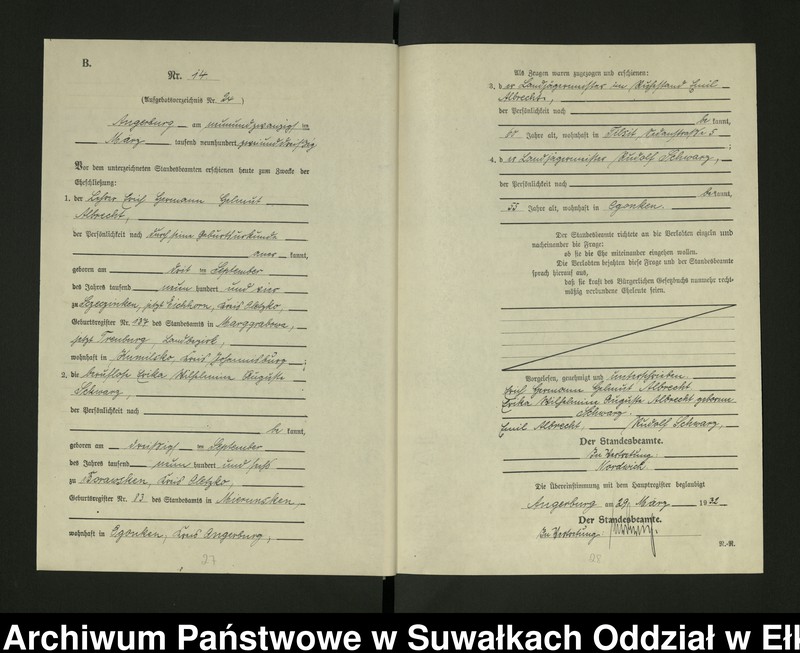 B.
Nr. 14
(Aufgebotsverzeichnis Nr. 24)
Angerburg am neunundzwanzigsten
März tausend neunhundert zweiunddreißig
Vor dem unterzeichneten Standesbeamten erschienen heute zum Zwecke der
Eheschließung:
1. der Erich Hermann Helmut
Albrecht,
der Persönlichkeit nach durch seine Geburtsurkunde
aner kannt,
geboren am September
des Jahres tausend neun hundert und vier
zu jetzt Eichhorn, Kreis Oletzko,
Geburtsregister Nr. 137 des Standesamts in Marggrabowa,
jetzt Treuburg, Landbezirk,
wohnhaft in Kumilsko, Kreis Johannisburg;
2. die berufslose Erika Wilhelmine Auguste
Schwarz,
der Persönlichkeit nach
be kannt,
geboren am dreißig ten September
des Jahres tausend neun hundert und sechs
zu Borawsken, Kreis Oletzko,
Geburtsregister Nr. 83 des Standesamts in Mierunsken,
wohnhaft in Ogonken, Kreis Angerburg,
27
Als Zeugen waren zugezogen und erschienen:
3. der Landjägermeister im Ruhestand Emil
Albrecht,
der Persönlichkeit nach
be kannt,
Jahre alt, wohnhaft in Tilsit, 5
;
4. der Landjägermeister Rudolf Schwarz,
der Persönlichkeit nach
be kannt,
53 Jahre alt, wohnhaft in Ogonken.
Der Standesbeamte richtete an die Verlobten einzeln und
nacheinander die Frage:
ob sie die Ehe miteinander eingehen wollen.
Die Verlobten bejahten diese Frage und der Standesbeamte
sprach hierauf aus,
daß sie kraft des Bürgerlichen Gesetzbuchs nunmehr recht-
mäßig verbundene Eheleute seien.
Vorgelesen, genehmigt und unterschrieben.
Erich Hermann Helmut Albrecht
Erika Wilhelmine Auguste Albrecht geborene
Schwarz.
Emil Albrecht. Rudolf Schwarz,
Der Standesbeamte.
In Vertretung:
Nordwich.
Die Übereinstimmung mit dem Hauptregister beglaubigt
Angerburg am 29. März 1932
Der Standesbeamte.
In Vertretung
28
N.-R.
Archiwum Państwowe w Suwałkach Oddział w Ełk